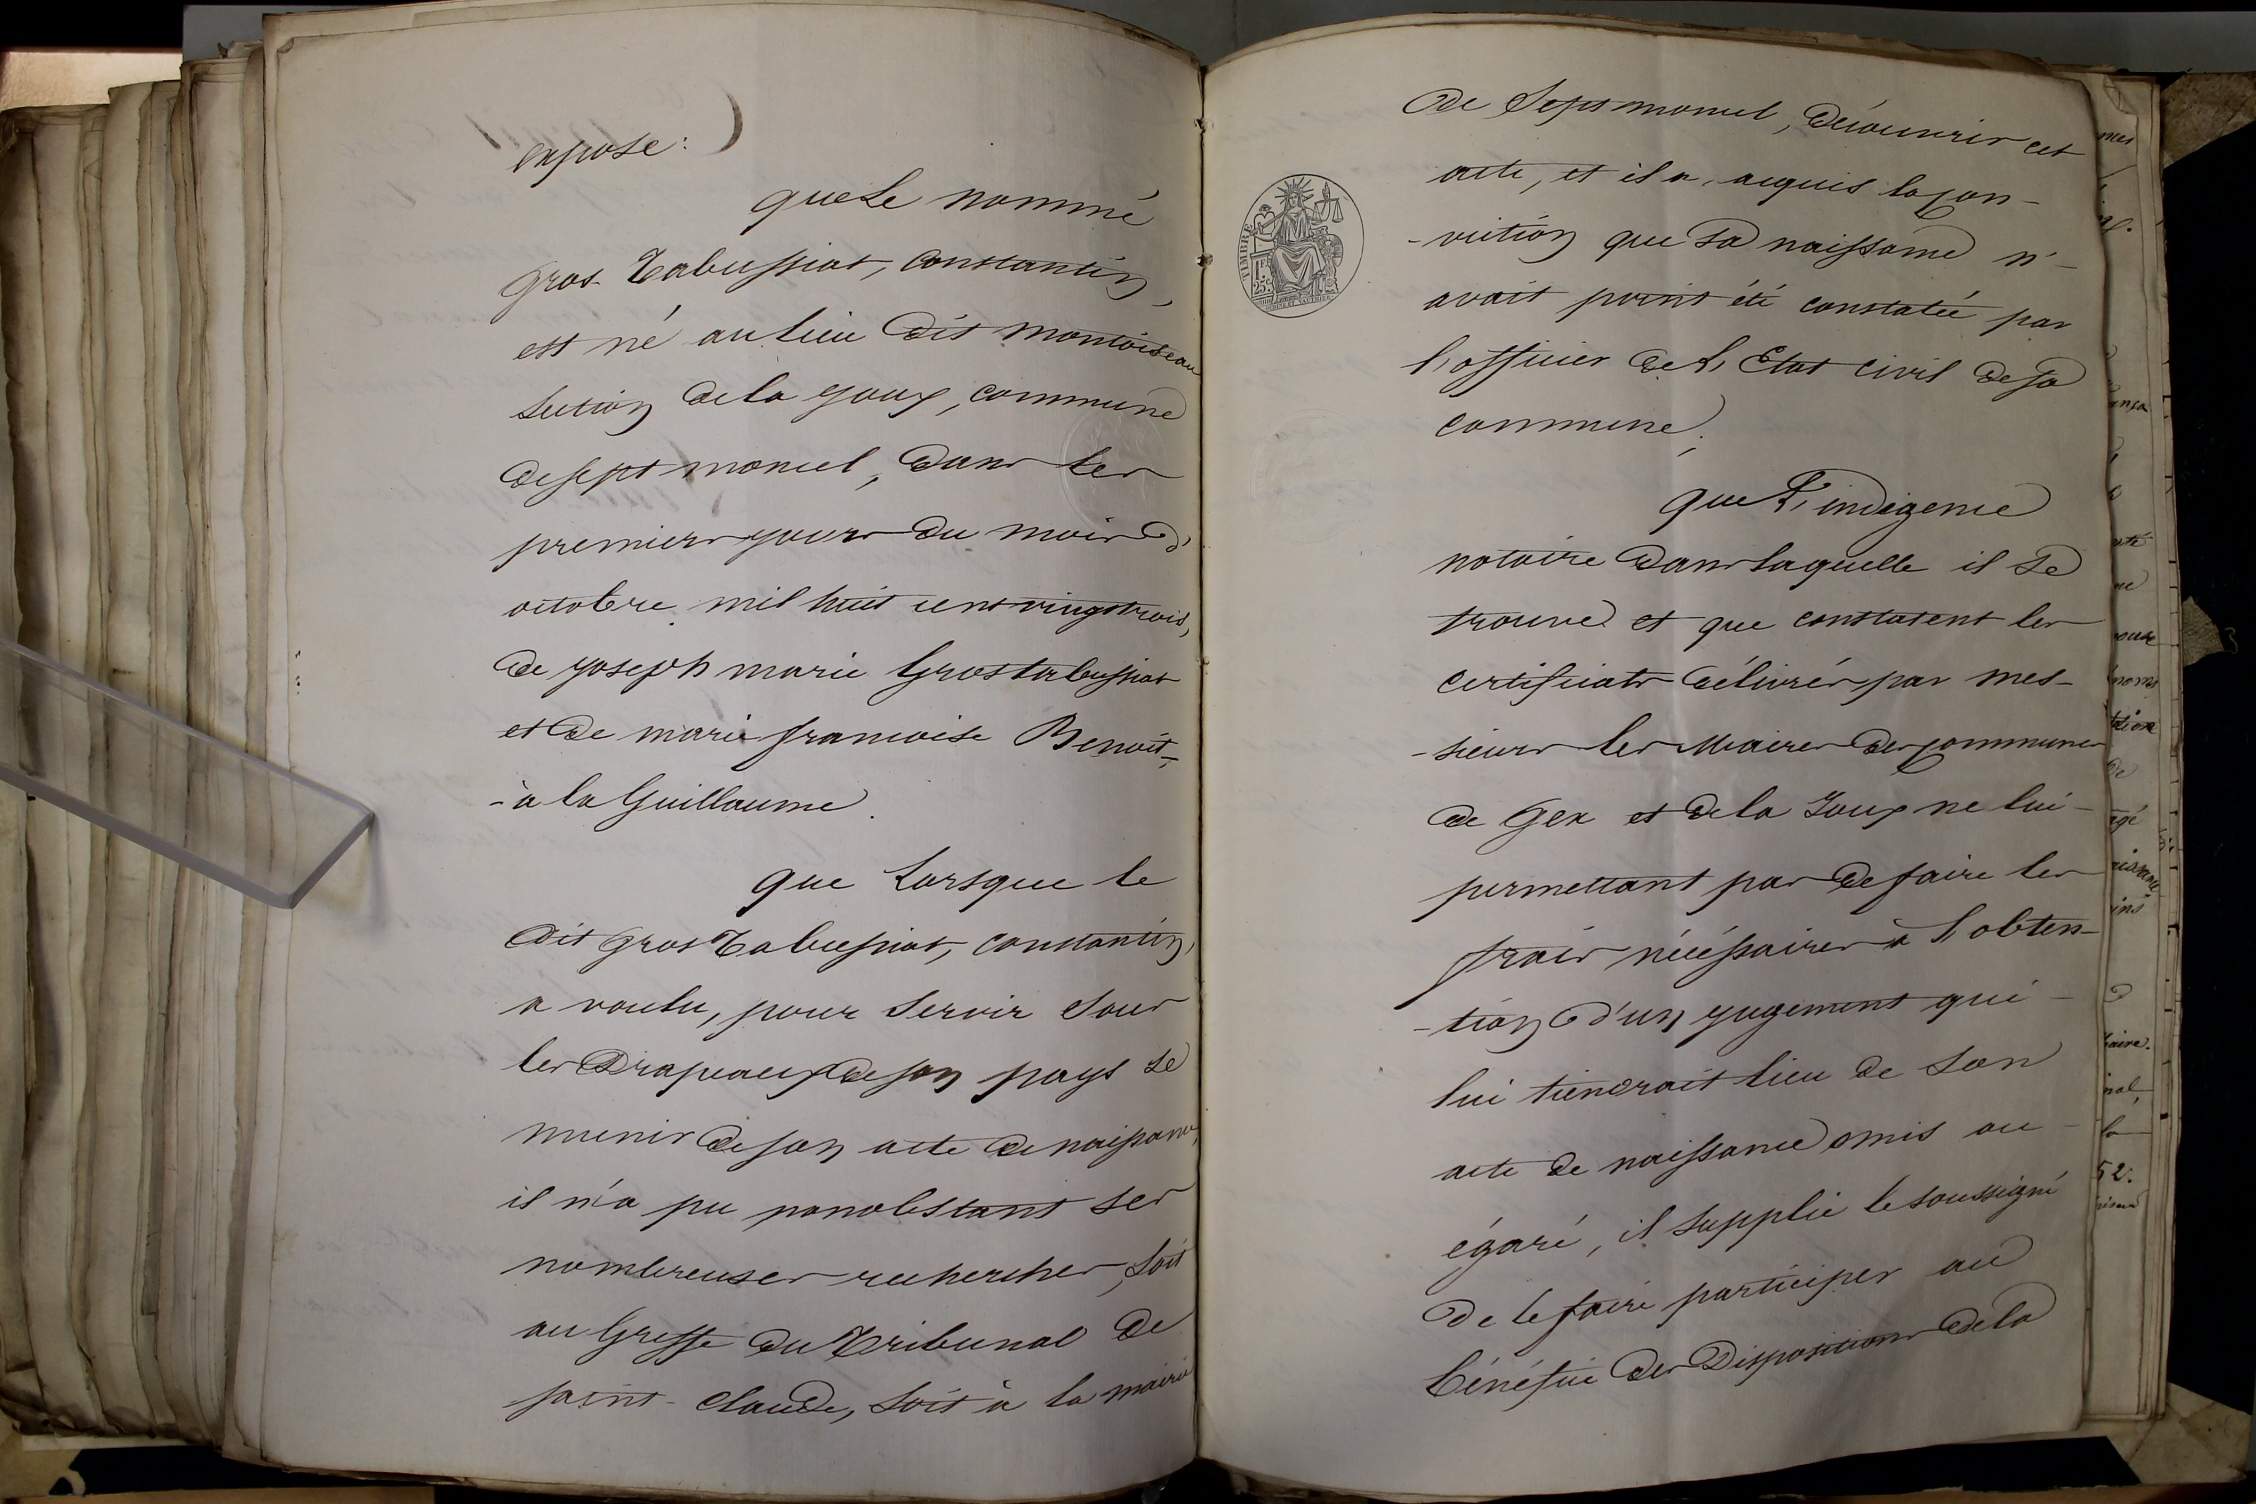 expose:
que Le nommé
Gros-Tabussiat, Constantin,
est né au lieu dit Montoiseau
section de la Joux, commune
de sept moncel, dans les
premiers jours du mois d'
octobre mil huit cent vingt trois,
de Joseph marie Gros tabussiat
et de marie francoise Benoit-
-à la Guillaume.
que Lorsque le
dit Gros Tabussiat, Constantin,
a voulu, pour servir sous
les Drapeaux de son pays se
munir de son acte de naissance,
il n'a pu nonobstant ses
nombreuses recherches, soit
au Greffe du Tribunal de
saint-Claude, soit à la mairie
de Septmoncel, découvrir cet
acte, et il a acquis la con-
-viction que sa naissance n'-
avait point été constatée par
l'officier de L'Etat civil de sa
commune;
que L'indigence
notoire dans laquelle il se
trouve et que constatent les
certificats délivrés par mes-
-sieurs les Maires des communes
de Gex et de la Joux ne lui-
permettant pas de faire les
frais nécéssaires à l'obten-
-tion d'un jugement qui-
lui tiendrait lieu de son
acte de naissance omis ou-
égaré, il supplie le soussigné
de le faire participer au
bénéfice des Dispositions de la
TIMBRE
1F.
25C.
mes
ance
nté
ne
pour
noms
tation
de
agé
ins
taire.
nal,
la
52.